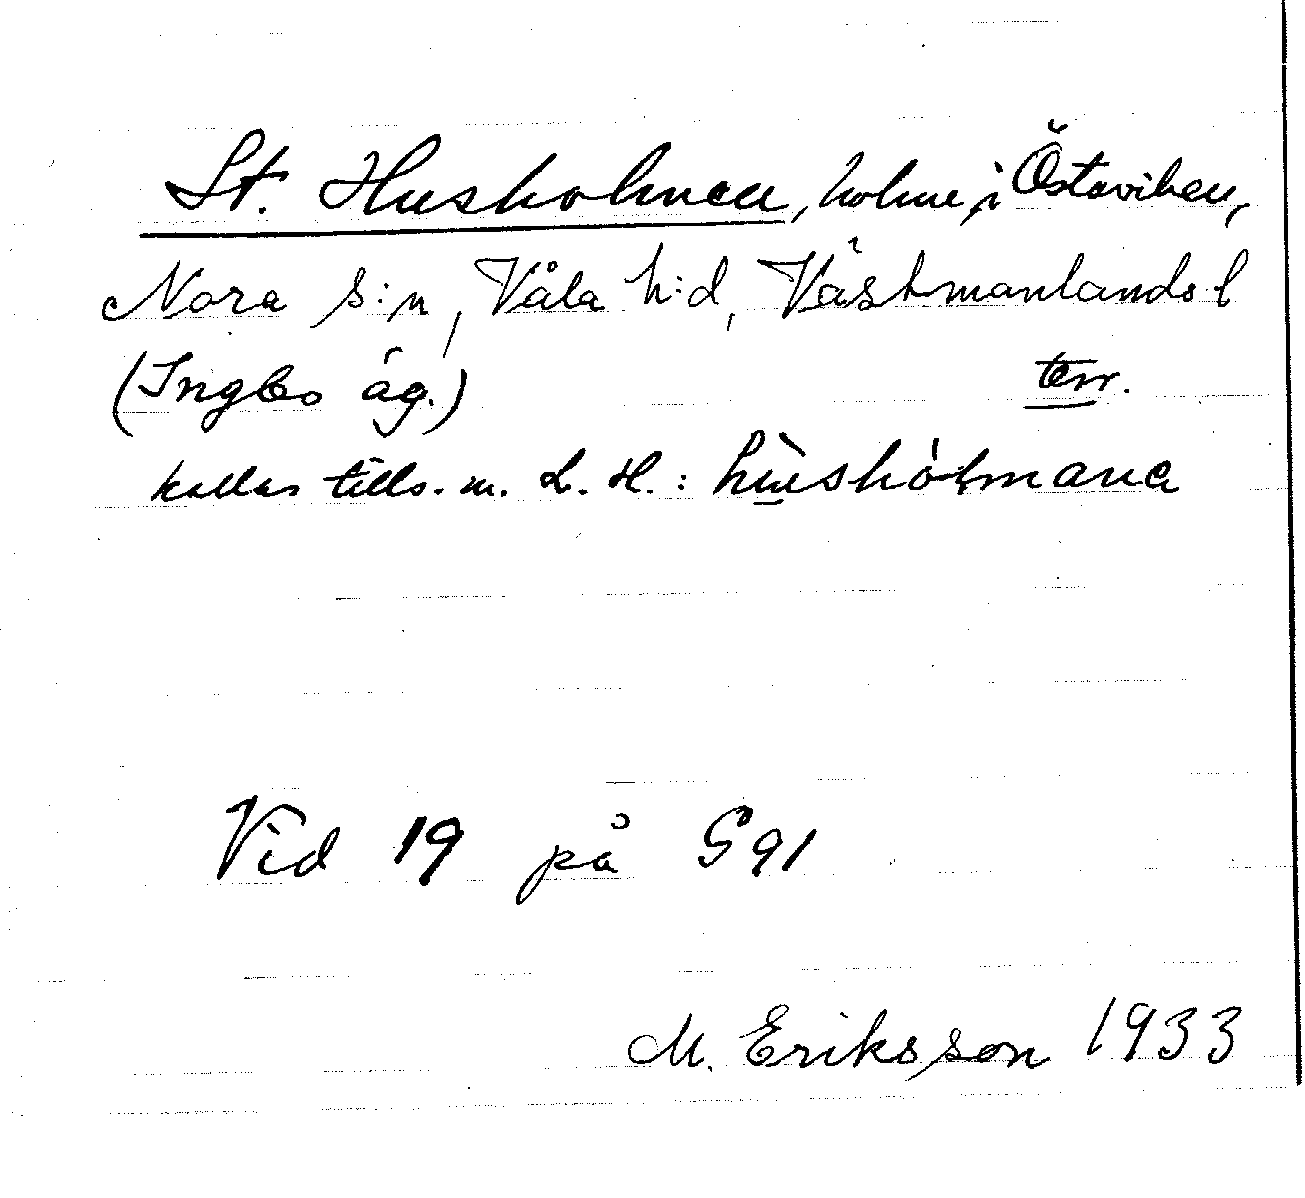 St. Husholmen, holme i Östaviken,
Nora s:n, Våla h:d, Västmanlands l
(Ingbo äg.) terr.
kallas tills. m. L. H.: hùshólmana
Vid 19 på G 91
M. Eriksson 1933